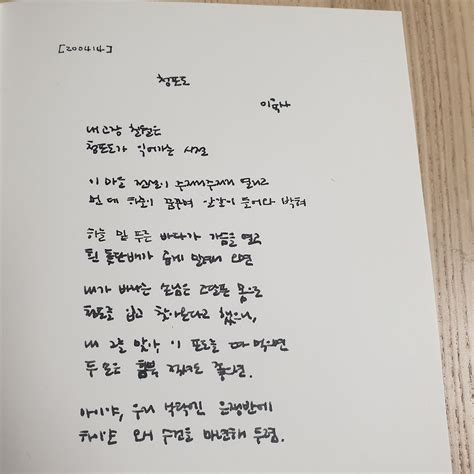 [200414]
청포도
이육사
내 고장 칠월은
청포도가 익어가는 시절
이 마을 전설이 주저리주저리 열리고
먼 데 하늘이 꿈꾸며 알알이 들어와 박혀
하늘 밑 푸른 바다가 가슴을 열고
흰 돛단배가 곱게 밀려서 오면
내가 바라는 손님은 고달픈 몸으로
청포를 입고 찾아온다고 했으니,
내 그를 맞아, 이 포도를 따 먹으면
두 손은 함뿍 적셔도 좋으련.
아이야, 우리 식탁엔 은쟁반에
하이얀 모시 수건을 마련해 두렴.